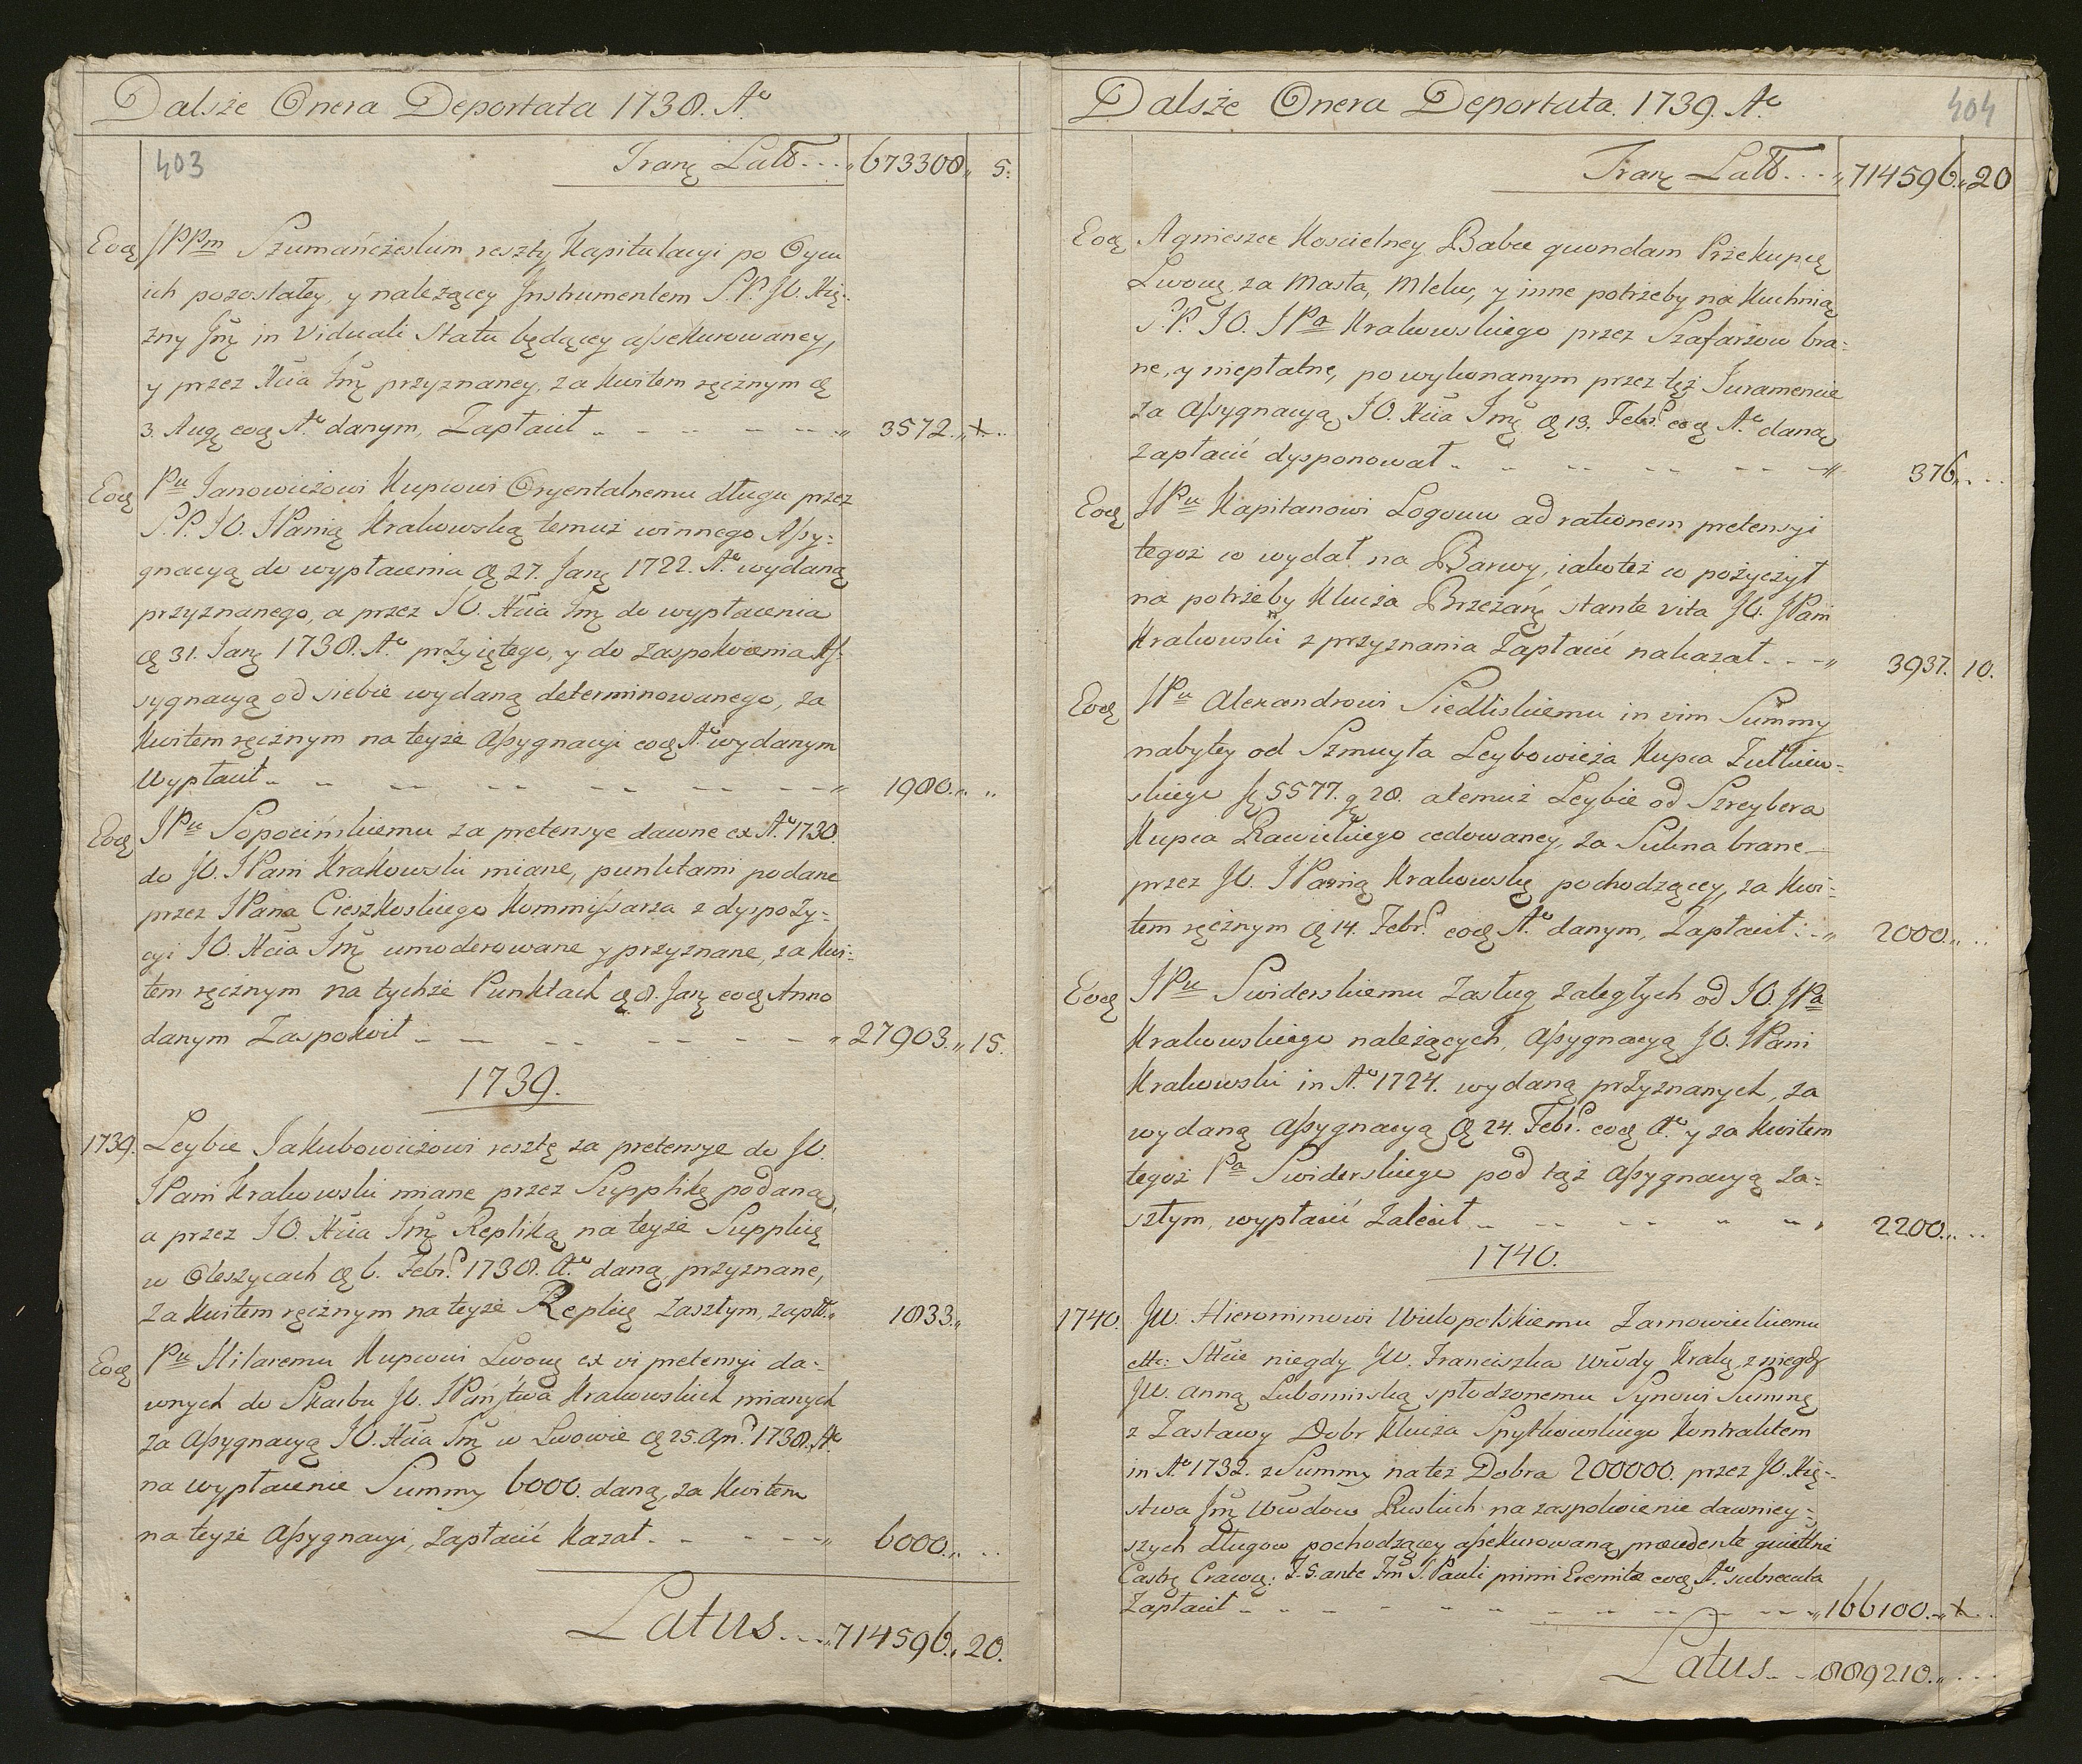 Dalsze Onera Deportata 1738. Aº
403
Tranę Latō... „673308„ 5:
Eodę JPPm Szumańczeskim reszty Kapitulacyi po Oycu
ich pozostałey, y należącey Jnstrumentem S.P. JO. Xię-
żny Jmę in Viduali Statu będącey assekurowaney,
y przez Xcia Jmę przyznaney, za kwitem ręcznym dę
3. Augę eodę Aº danym, Zapłacił „ 3572.„+..
Eodę Pu Janowiczowi Kupcowi Oryentalnemu długu przez
S.P. JO. JPanią Krakowską temuż winnego Assy-
gnacyą do wypłacenia dę 27. Janę 1722. Aº wydaną
przyznanego, a przez JO. Xcia Jmę do wypłacenia
dę 31. Janę 1738. Aº przyiętego, y do zaspokoienia As-
sygnacyą od siebie wydaną determinowanego, za
Kwitem ręcznym na teyże Assygnacyi eodę Aº wydanym
Wypłacił „ 1980.„ „
Eodę JPu Sopocińskiemu za pretensye dawne ex Aº 1730.
do JO. JPani Krakowski miane, punktami podane
przez JPana Cieszkoskiego Kommissarza z dyspozy-
cyi JO. Xcia Jmę umoderowane y przyznane, za kwi-
tem ręcznym na tychże Punktach dę 8. Janę eodę Anno
danym Zaspokoił „ 27903.„ 15.
1739.
1739. Leybie Jakubowiczowi resztę za pretensye do JO.
JPani Krakowski miane przez Supplikę podaną,
a przez JO. Xcia Jmę Repliką na teyże Supplicę
w Oleszycach dę 6. Febrˢ 1738. Aº daną, przyznane,
za kwitem ręcznym na teyże Replicę zaszłym, zapłł. „ 1833.„
Eodę Pu Hilaremu Kupcowi Lwowę ex vi pretensyi da-
wnych do Skarbu JO. JPaństwa Krakowskich mianych
za Assygnacyą JO. Xcia Jmę w Lwowie dę 25. Apr. 1738. Aº
na wypłacenie Summy 6000. daną, za kwitem
na teyże Assygnacyi, Zapłacić kazał „ 6000.„ ..
Latus... „714596.„ 20.
Dalsze Onera Deportata. 1739. Aº
404
Tranę Latō... „714596.„20
Eodę Agnieszce Koscielney Babce quondam Przekupcę
Lwowę za Masła, Mleko, y inne potrzeby na Kuchnią
S.P. JO. JPa Krakowskiego przez Szafarzow bra-
ne, y niepłatne, po wykonanym przez tęż Juramencie
za Assygnacyą JO. Xcia Jmę dę 13. Febrˢ eodę Aº daną,
zapłacić dysponował „ 376„...
Eodę JPu Kapitanowi Logowu ad rationem pretensyi
tegoż co wydał na Barwy, iakoteż co pożyczył
na potrzeby Klucza Brzezanę stante vita JO. JPani
Krakowski z przyznania Zapłacić nakazał „ 3937. 10.
Eodę JPu Alexandrowi Siedliskiemu in vim Summy
nabytey od Szmuyła Leybowicza Kupca Zułkiew-
skiego fę 5577. gę 28. a temuż Leybie od Szreybera
Kupca Rawickiego cedowaney, za Sukna brane
przez JO. JPanią Krakowską pochodzącey, za kwi-
tem ręcznym dę 14. Febrˢ eodę Aº danym, Zapłacił „ 2000.„ ..
Eodę JPu Swiderskiemu zasług zaległych od JO. JPa
Krakowskiego należących, Assygnacyą JO. JPani
Krakowski in Aº 1724. wydaną przyznanych, za
wydaną Assygnacyą dę 24. Febrˢ eodę Aº y za kwitem
tegoż Pa Swiderskiego pod taż Assygnacyą za-
szłym, wypłacić Zalecił „ 2200.„...
1740.
1740. JW. Hieronimowi Wielopolskiemu Zarnowieckiemu
ettc: Sttcie niegdy JW. Franciszka Wwody Krakę, z niegdy
JW. Anną Lubomirską spłodzonemu Synowi Summę
z Zastawy Dobr Klucza Spytkowskiego Kontraktem
in Aº 1732. z Summy na też Dobra 200000. przez JO. Xię-
stwa Jmę Wwdow Ruskich na zaspokoienie dawniey-
szych długow pochodzącey assekurowaną, procedente quiettne
Castrę Cracovę: F. 5. ante Fm S. Pauli primi Eremitæ eodę Aº subsecuta
Zapłacił „166100.„+..
Latus.. „889210.„ ...